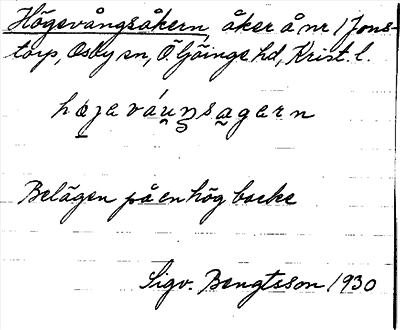 Högevångsåkern, åker å nr 1 Jons-
torp, Osby sn, Ö. Göinge hd, Krist. l.
hø̱ɟaváu̯ŋsa̱gaꝛn
Belägen på en hög backe
Sigv. Bengtsson 1930